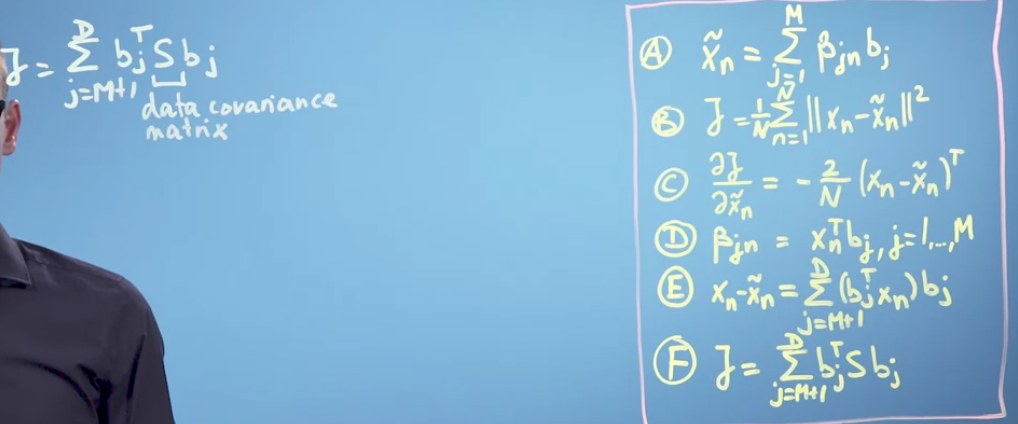 J = Σ_{j=M+1}^{D} b_j^T S b_j
data covariance
matrix
Ⓐ x̃_n = Σ_{j=1}^{M} β_{jn} b_j
Ⓑ J = 1/N Σ_{n=1}^{N} ||x_n - x̃_n||²
Ⓒ ∂J/∂x̃_n = - 2/N (x_n - x̃_n)^T
Ⓓ β_{jn} = x_n^T b_j, j=1,...,M
Ⓔ x_n - x̃_n = Σ_{j=M+1}^{D} (b_j^T x_n) b_j
Ⓕ J = Σ_{j=M+1}^{D} b_j^T S b_j